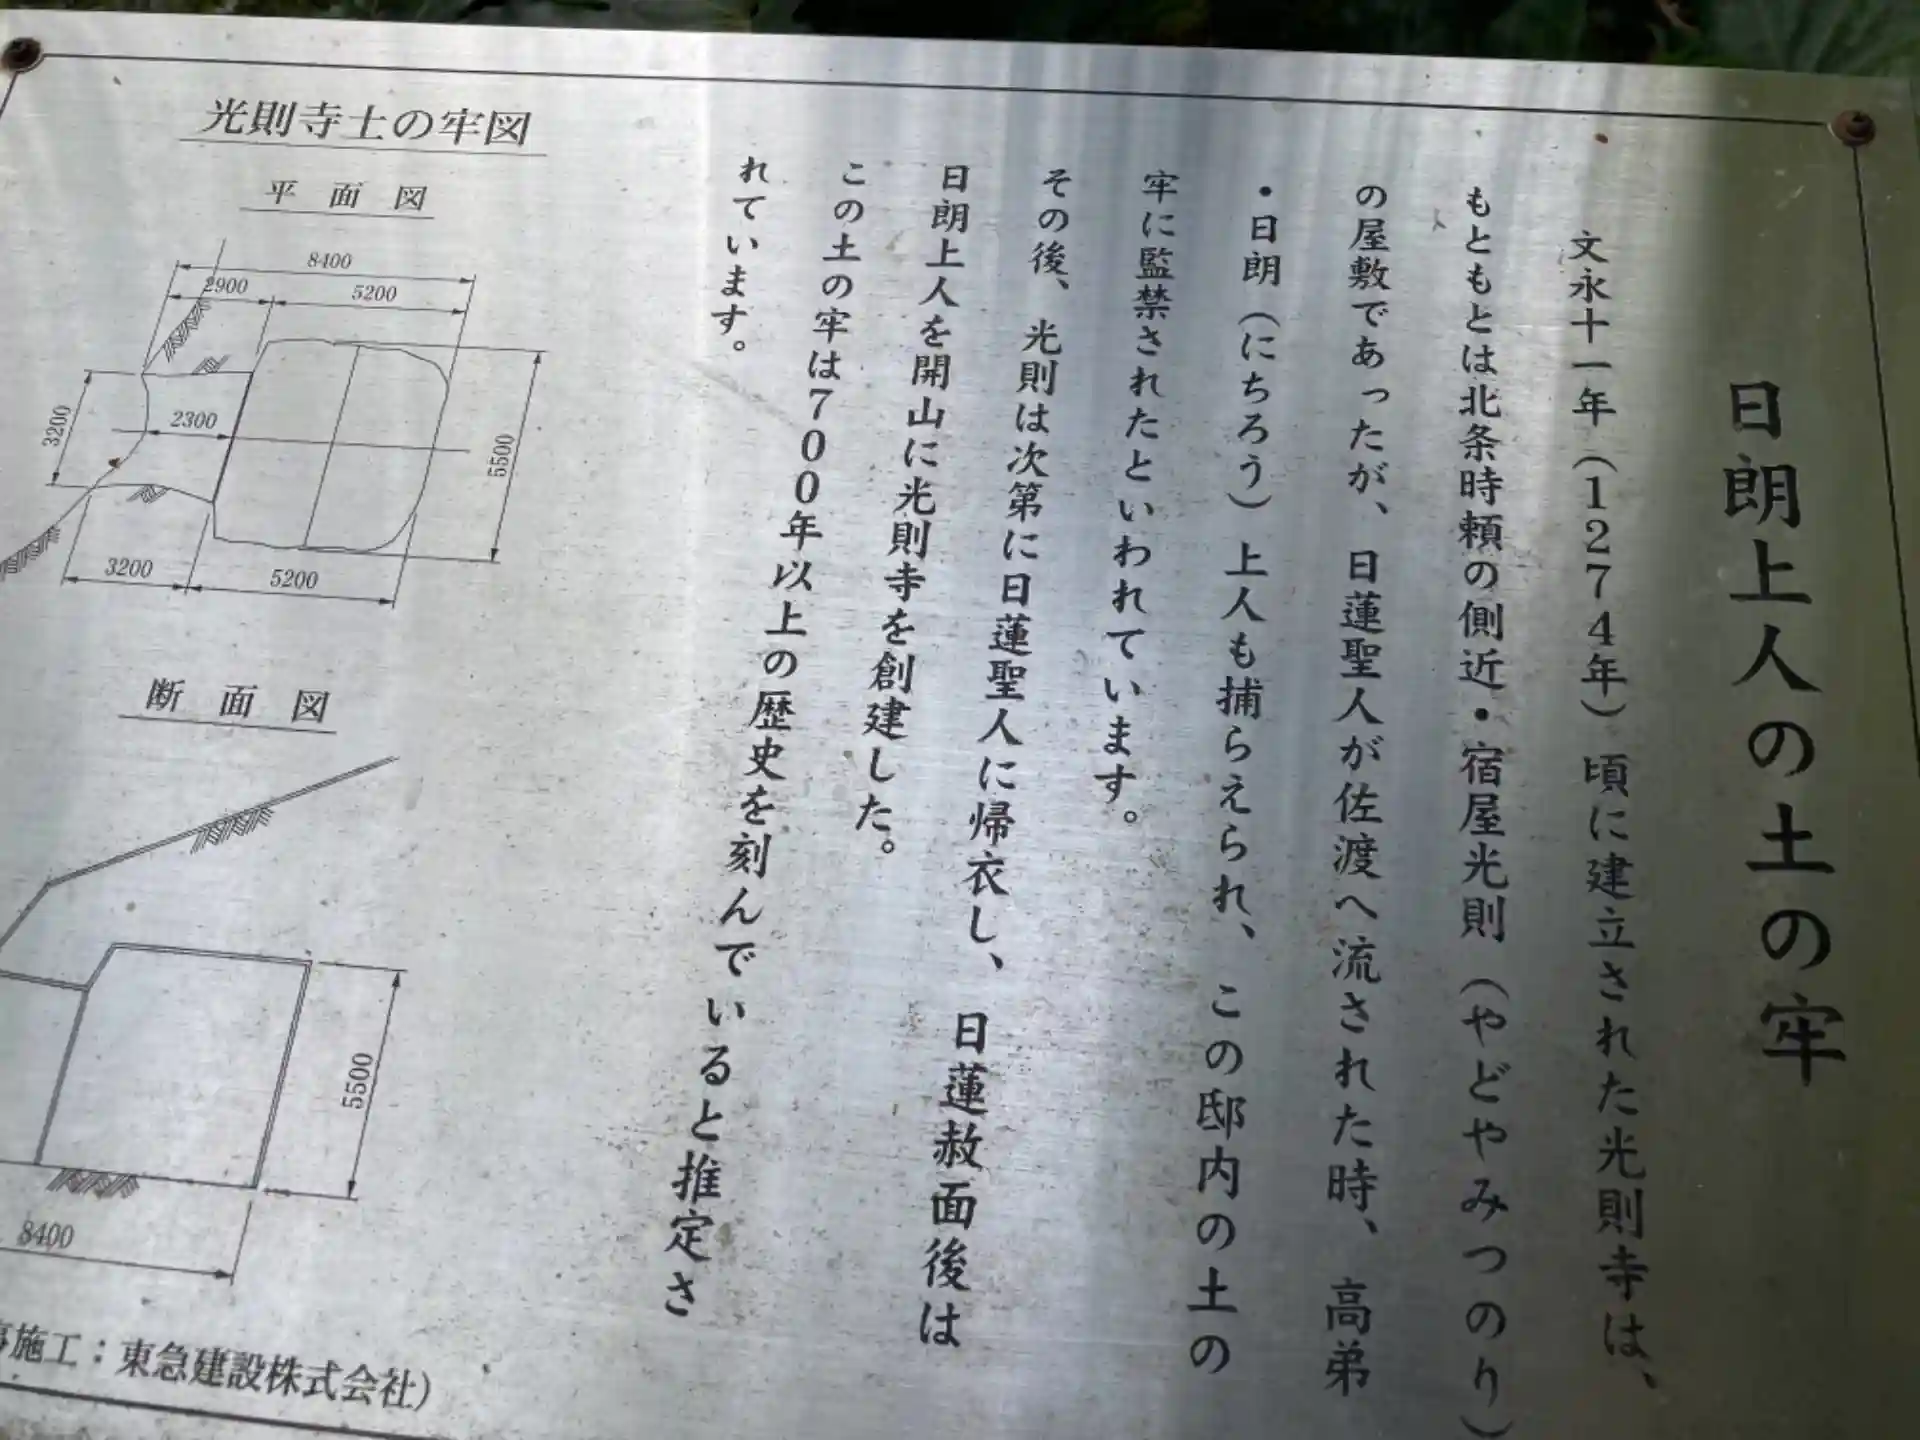 日朗上人の土の牢
文永十一年（1274年）頃に建立された光則寺は、
もともとは北条時頼の側近・宿屋光則（やどやみつのり）
の屋敷であったが、日蓮聖人が佐渡へ流された時、高弟
・日朗（にちろう）上人も捕らえられ、この邸内の土の
牢に監禁されたといわれています。
その後、光則は次第に日蓮聖人に帰衣し、日蓮赦面後は
日朗上人を開山に光則寺を創建した。
この土の牢は700年以上の歴史を刻んでいると推定さ
れています。
光則寺土の牢図
平面図
8400
2900
5200
3200
2300
5500
3200
5200
断面図
5500
8400
施工：東急建設株式会社）